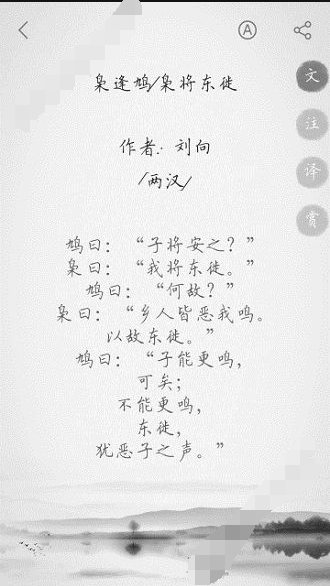 Ⓐ
枭逢鸠/枭将东徙
文
作者：刘向
注
/两汉/
译
赏
鸠曰：“子将安之？”
枭曰：“我将东徙。”
鸠曰：“何故？”
枭曰：“乡人皆恶我鸣。
以故东徙。”
鸠曰：“子能更鸣，
可矣；
不能更鸣，
东徙，
犹恶子之声。”